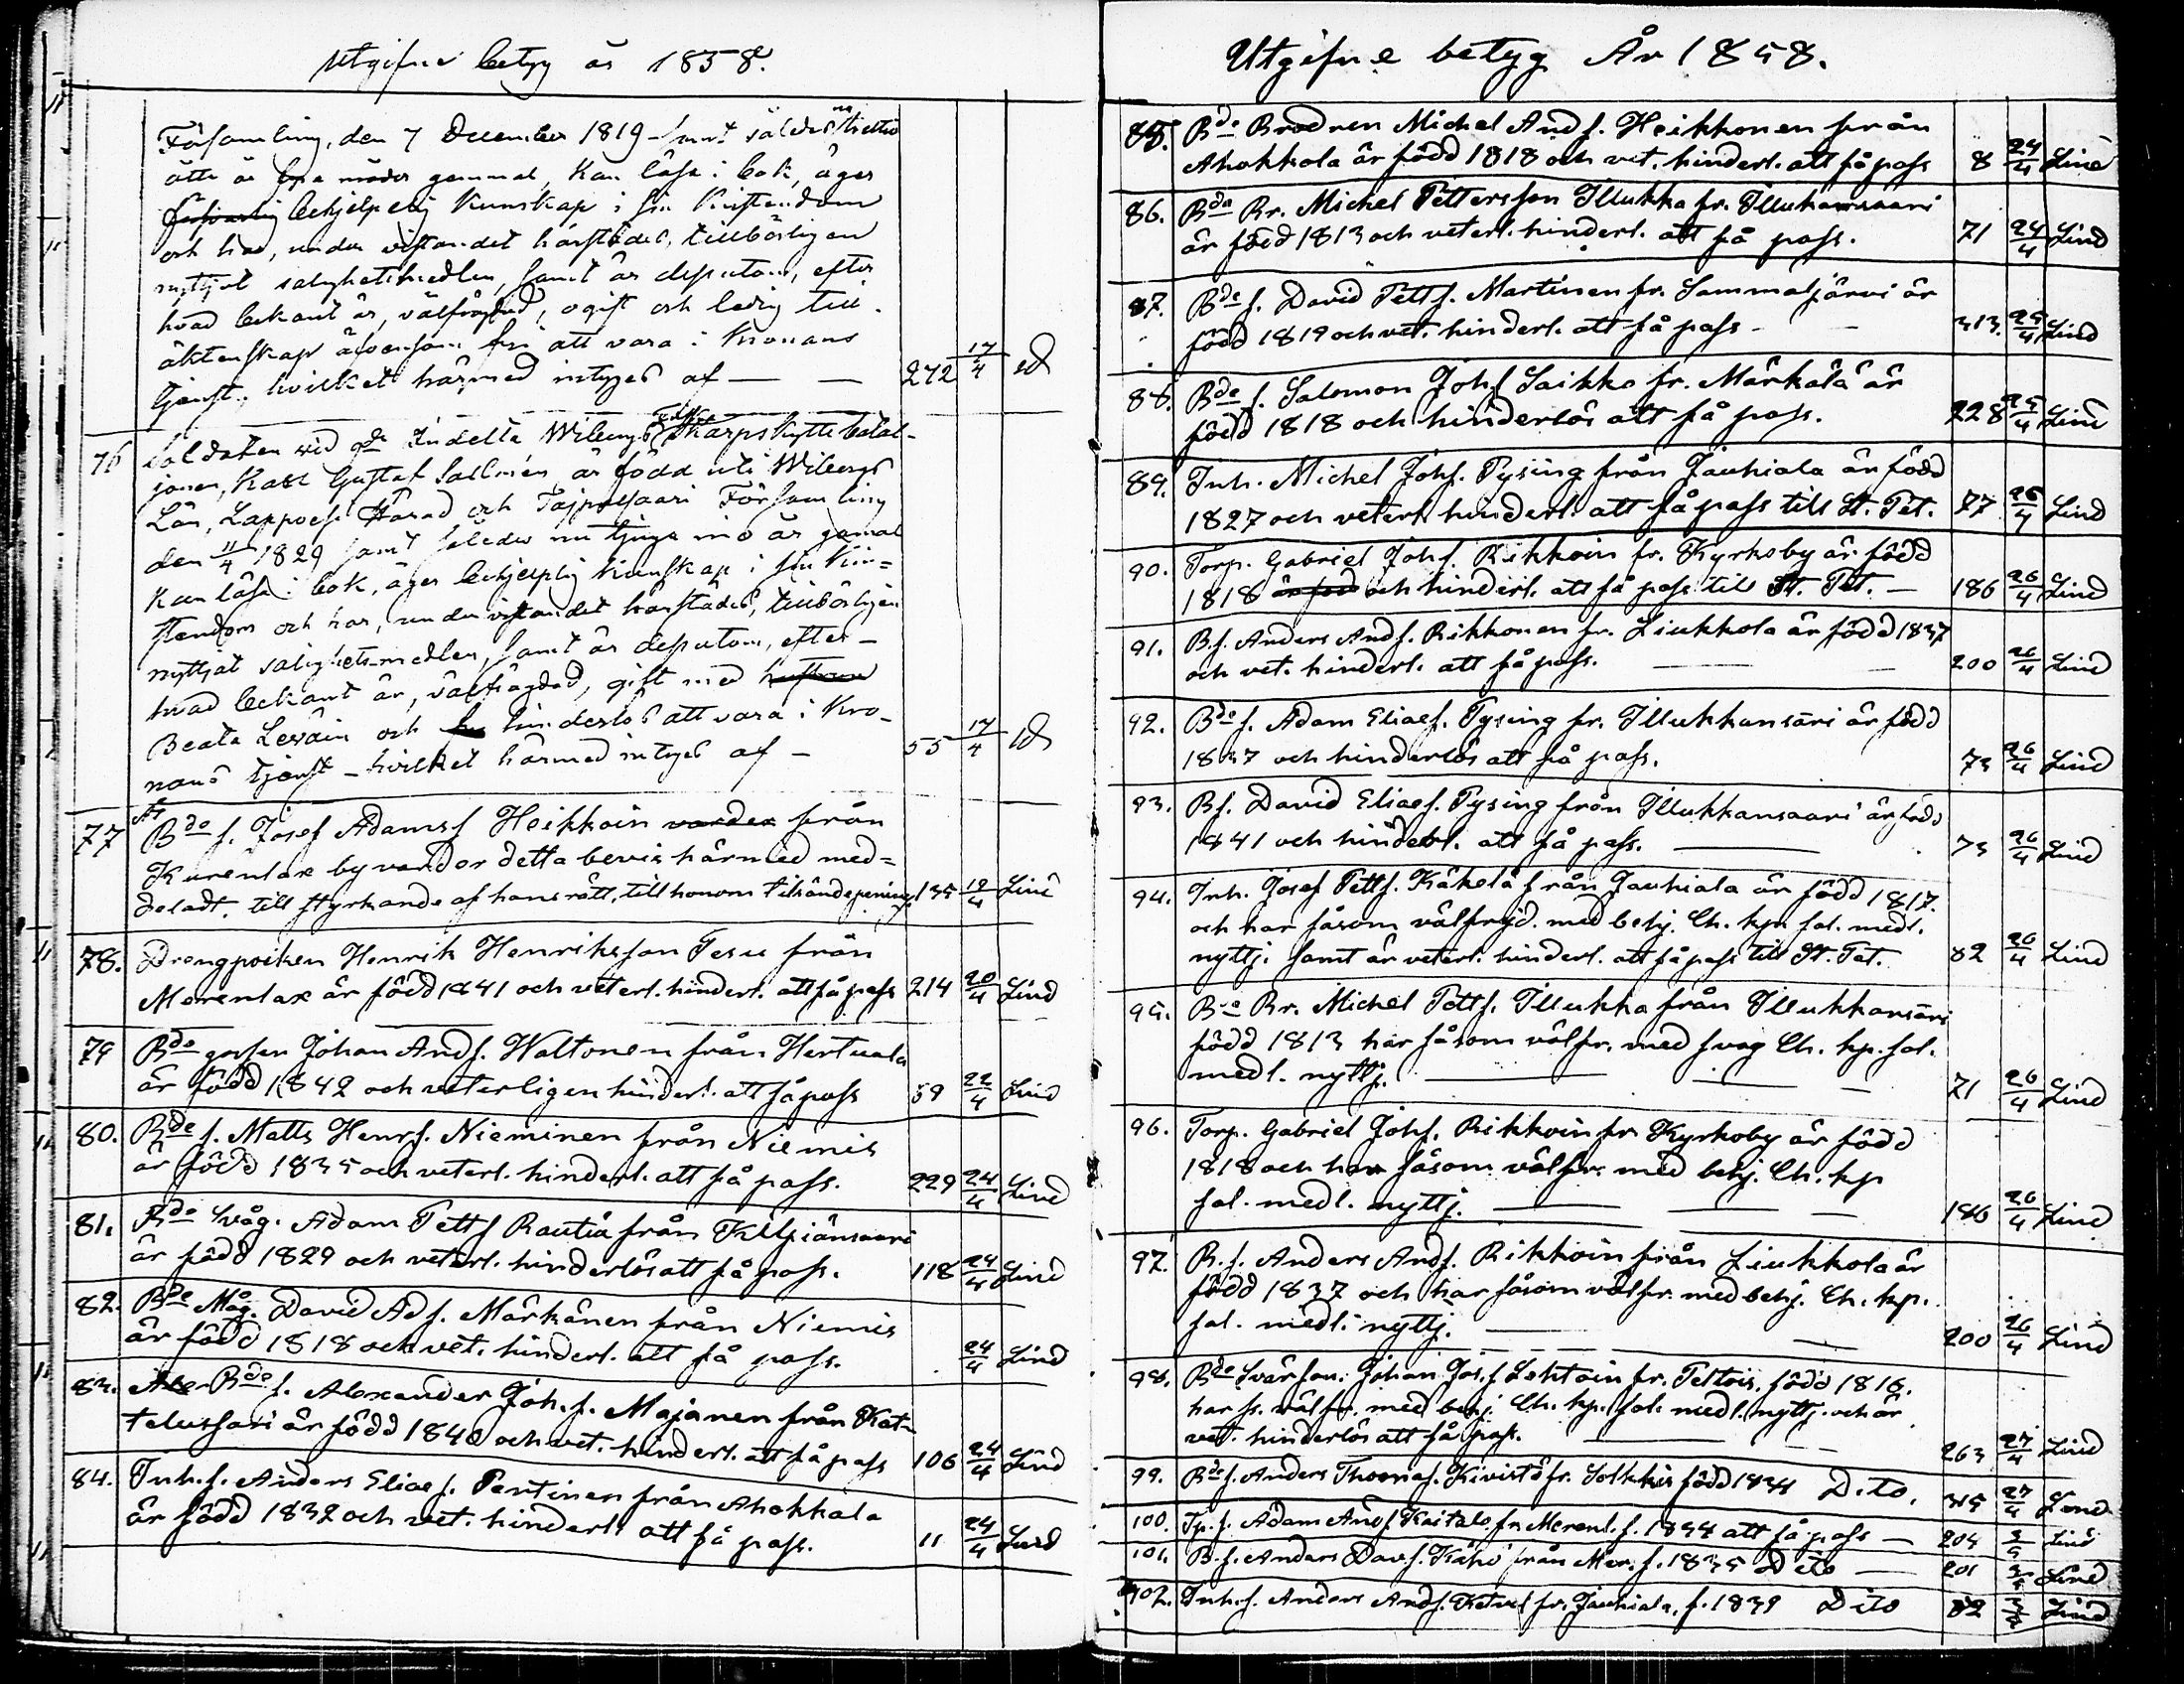 Utgifne betyg år 1858.
Församling, den 7 December 1819 - samt således trettio
åtta år gammal, kan läsa i bok, äger
behjelpelig kunskap i sin Kristendom
och har, under vistandet härstädes, tillbörligen
nyttjat salighetsmedlen, samt är dessutom, efter
hvad bekant är, välfrägdad, ogift och ledig till
äktenskap äfvensom fri att vara i Kronans
tjenst, hvilket härmed intygas af — — 272 17/4
76 Soldaten vid Indelta Wiborgs Skarpskytte batal-
jonen, Karl Gustaf Sallmén är född uti Wiborgs
Län, Lappvesi Härad och Taipalsaari Församling
den 11/4 1829 samt således nu tjugu nio år gamal
Kan läsa i bok, äger behjelplig kunskap i sin Kri-
stendom och har, under vistandet härstädes, tillbörligen
nyttjat salighetsmedlen, samt är dessutom, efter
hvad bekant är, välfrägdad, gift med hustrun
Beata Leväin och hinderlös att vara i Kro-
nans tjenst - hvilket härmed intygas af - 55 17/4
77 Bde s. Josef Adamsf Heikkoin varder från
Kurenlax by varder detta bevis härmed med=
deladt, till styrkande af hans rätt, till honom tilsände penings 135 19/4 Lind
78. Drengpoiken Henrik Henriksson Tesu från
Merenlax är född 1841 och veterl. hinderl. att få pass 214 20/4 Lind
79 Bde gossen Johan Ands. Waltonen från Hertuala
är född 1842 och veterligen hinderl. att få pass 59 22/4 Lind
80. Bde s. Matts Henrs. Nieminen från Niemis
är född 1835 och veterl. hinderl. att få pass. 229 24/4 Lind
81. Bde svåg. Adam Petts Rautia från Kilpiänsaari
är född 1829 och veterl. hinderlös att få pass. 118 24/4 Lind
82. Bde Måg. David Ads. Märkänen från Niemis
är född 1818 och vet. hinderl. att få pass. 24/4 Lind
83. Bde s. Alexander Joh.s. Majanen från Kat-
telussari är född 1840 och vet. hinderl. att få pass 106 24/4 Lind
84. Inh.s. Anders Elias s. Pentinen från Ahokkala
är född 1832 och vet. hinderl. att få pass. 11 24/4 Lind
Utgifne betyg År 1858.
85. Bde Brodren Michel Ands. Heikkonen från
Ahokkala är född 1818 och vet. hinderl. att få pass 8 24/4 Lind
86. Bde Br. Michel Pettersson Illukka fr. Illukansaari
är född 1813 och veterl. hinderl. att få pass. 71 24/4 Lind
87. Bde s. David Petts. Martinen fr. Sammaljärvi är
född 1819 och vet. hinderl. att få pass - 313. 25/4 Lind
88. Bde s. Salomon Johs Saikko fr. Märkälä är
född 1818 och hinderlös att få pass. 228 25/4 Lind
89. Inh. Michel Johs. Pysing från Jauhiala är född
1827 och veterl. hinderl. att få pass till St. Pet. 77 26/4 Lind
90. Torp. Gabriel Johs. Rikkoin fr. Kyrkoby är född
1818 är född och hinderl. att få pass till St. Pet. — 186 26/4 Lind
91. B.s. Anders Ands. Rikkonen fr. Liukkola är född 1837
och vet. hinderl. att få pass. 200 26/4 Lind
92. Bde s. Adam Elias s. Pysing fr. Illukkansari är född
1837 och hinderlös att få pass. 73 26/4 Lind
93. Bs. David Elias s. Pysing från Illukkansaari är född
1841 och hinderl. att få pass. 73 26/4 Lind
94. Inh. Josef Petts. Käkelä från Jauhiala är född 1817.
och har såsom välfrejd. med behj. Ch. kp. sal. medl.
nyttj. samt är veterl. hinderl. att få pass till St. Pet. 82 26/4 Lind
95. Bde Br. Michel Petts. Illukka från Illukkansäri
född 1813 har såsom välfr. med svag Ch. kp. sal.
medl. nyttj. 71 26/4 Lind
96. Torp. Gabriel Johs. Rikkoin fr. Kyrkoby är född
1818 och har såsom välfr. med behj. Ch. kp
sal. medl. nyttj. 186 26/4 Lind
97. B.s. Anders Ands. Rikkoin från Liukkola är
född 1837 och har såsom välfr. med behj. Ch. kp.
sal. medl. nyttj. 200 26/4 Lind
98. Bde Svärson. Johan Jos.s Lehtoin fr. Pettois. född 1816.
har ss. välfr. med behj. Ch. kp. sal. medl. nyttj. och är
vet. hinderlös att få pass. 263 27/4 Lind
99. Bde s. Anders Thomas s. Kivistö fr. Solkkis född 1834 Dito. 315 27/4 Lind
100. Tp.s. Adam Ands. Kaitalo fr. Merenl. f. 1834 att få pass — 204 3/5 Lind
101. B.s. Anders Davs. Käpi från Mer. f. 1835 Dito — 201 3/5 Lind
102. Inh.s. Anders Ands. fr. Jauhiala, f. 1839 Dito 82 3/5 Lind